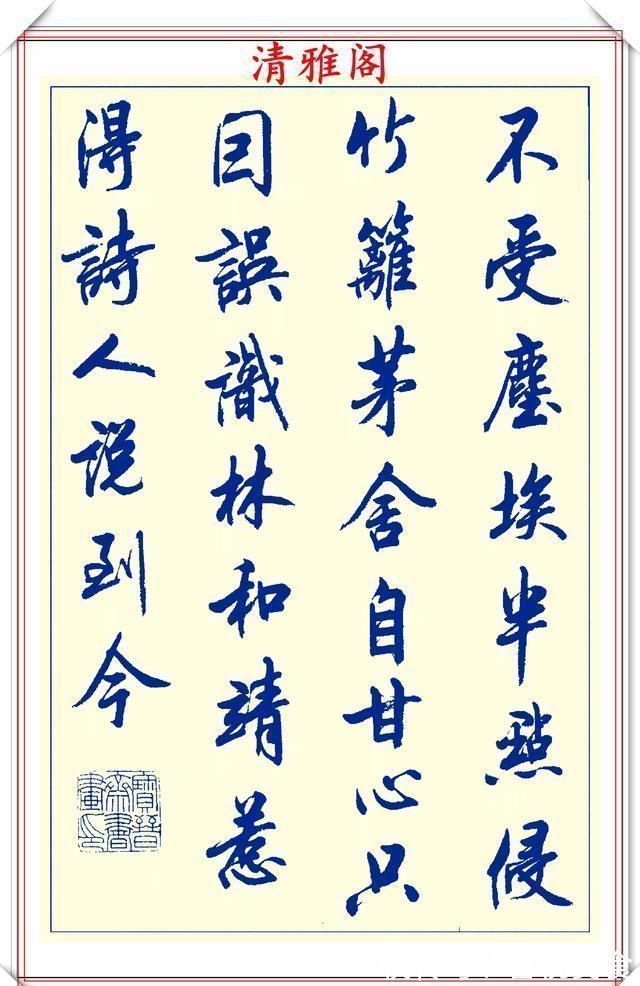 清雅阁
不受塵埃半點侵
竹籬茅舍自甘心只
因誤識林和靖惹
得詩人說到今
寶晉
齋書
畫印